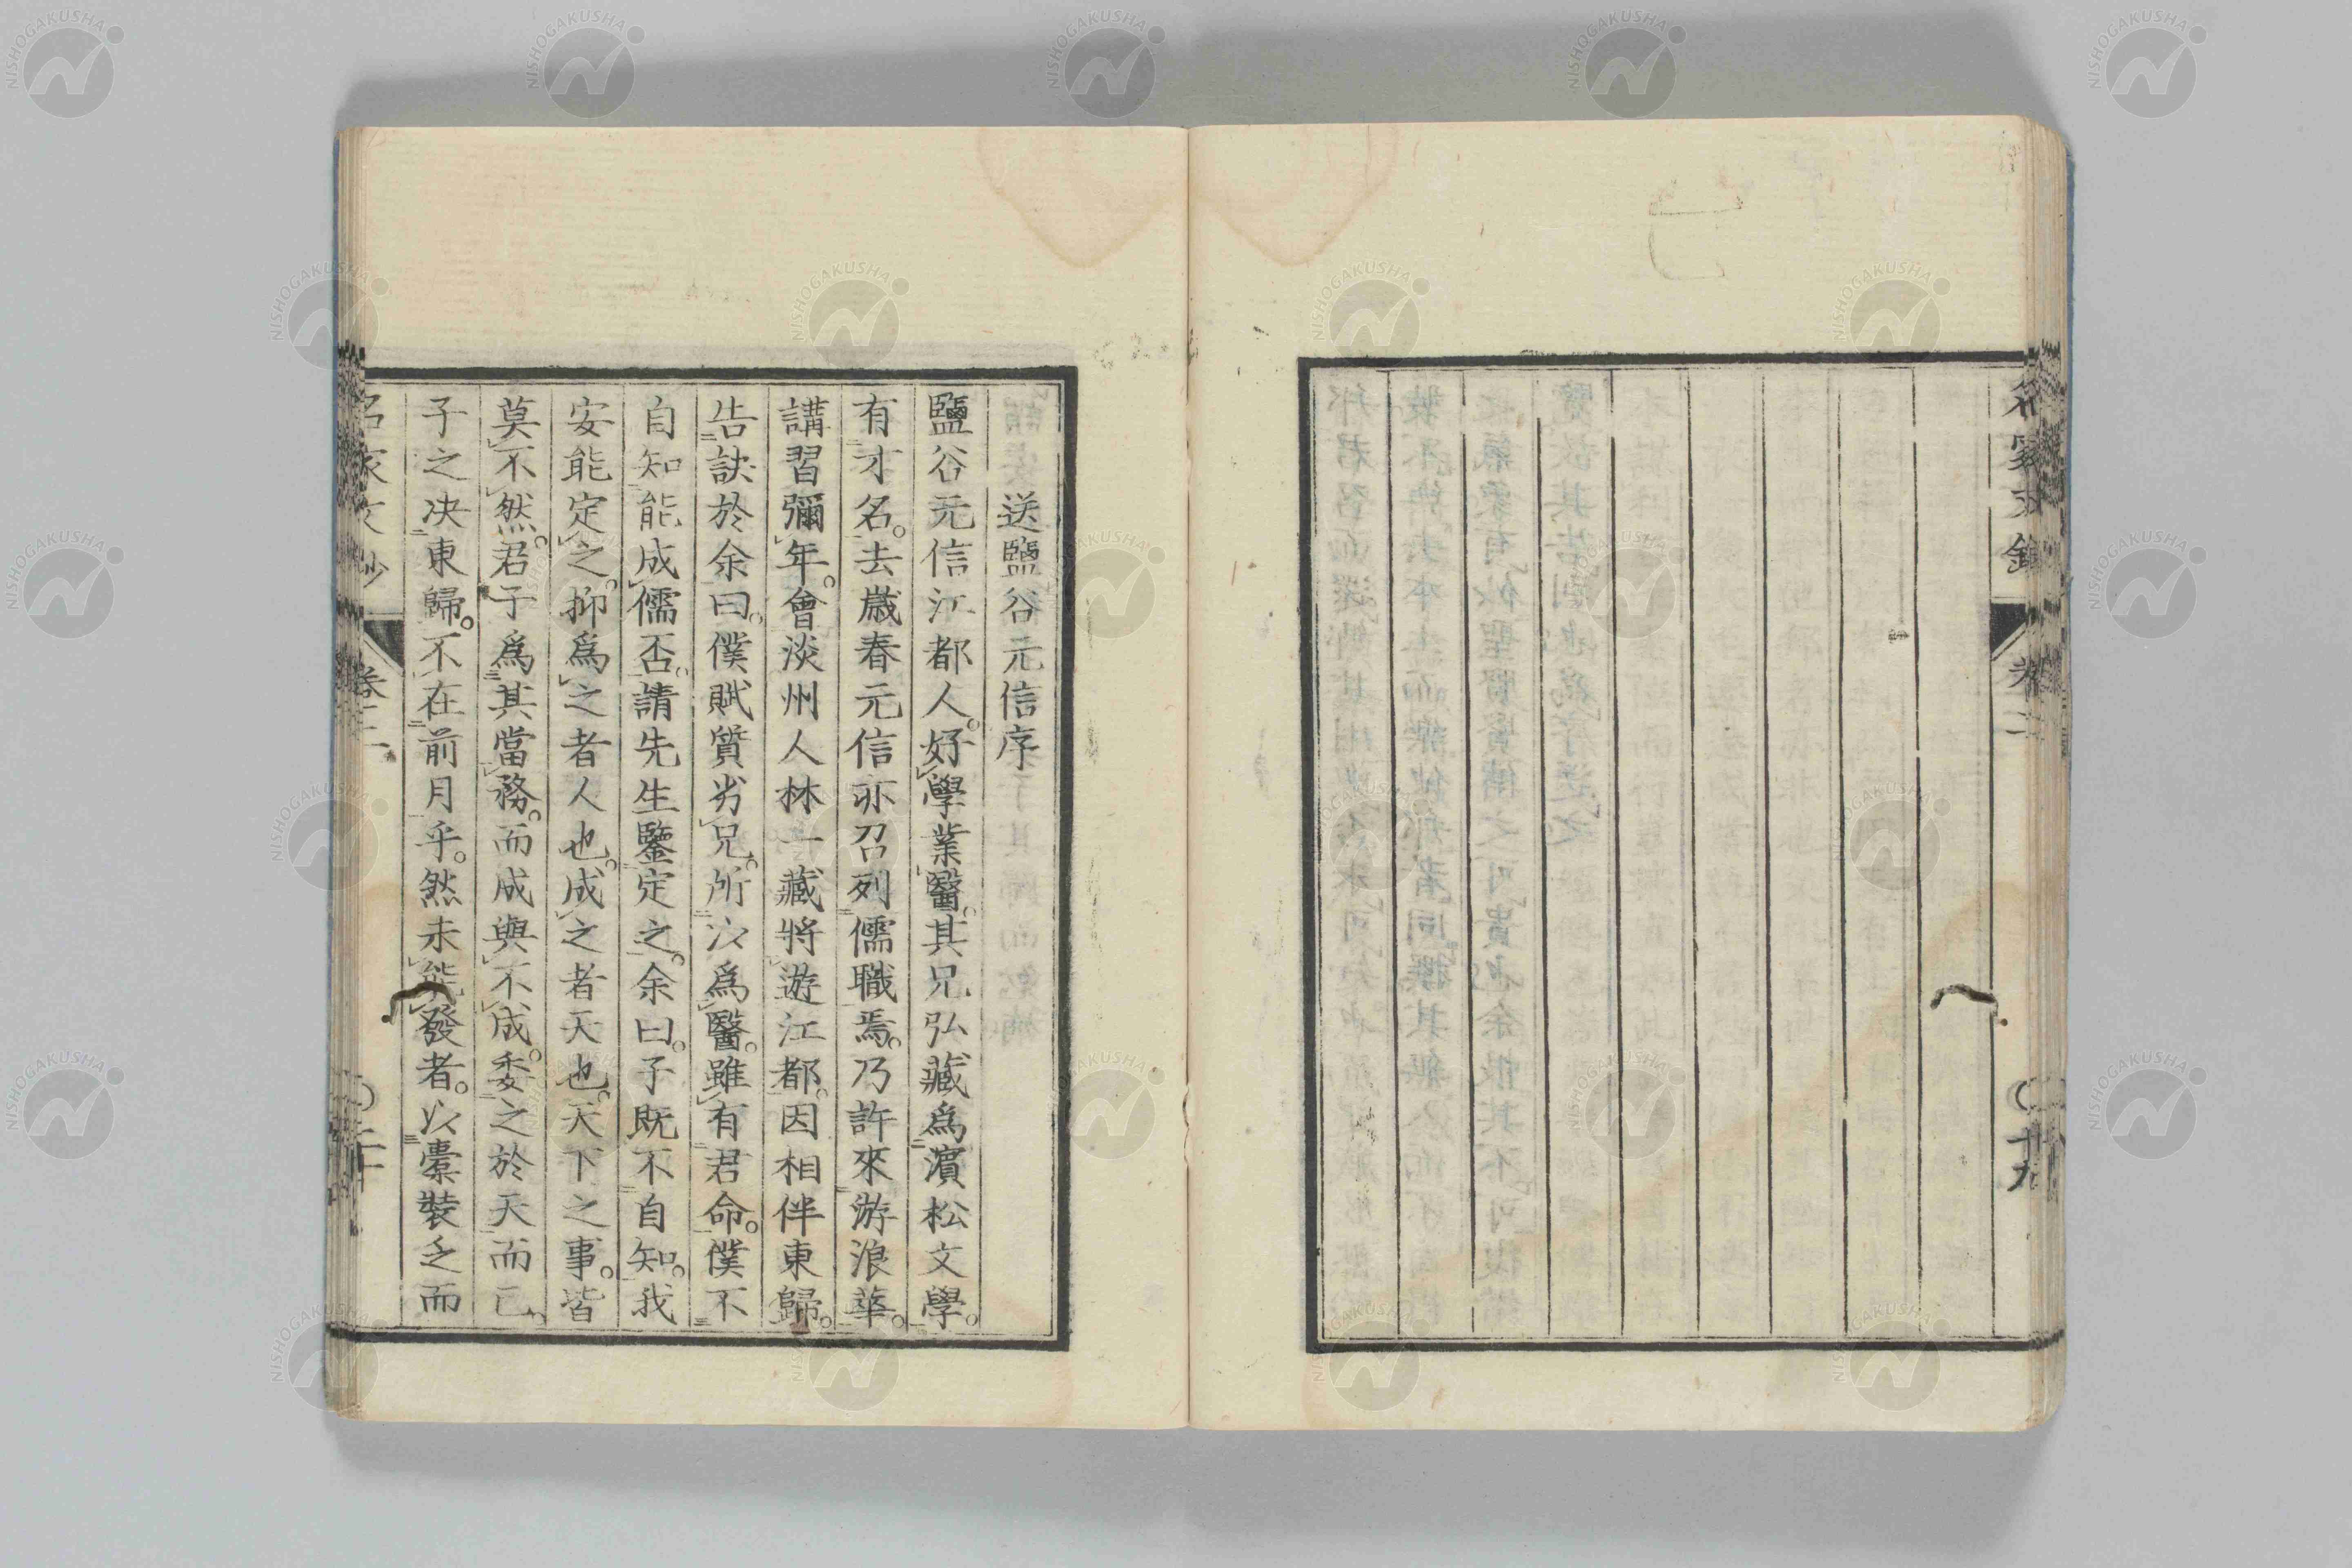 名家文鈔
卷二
〇十九
送鹽谷元信序
鹽谷元信江都人。好學業醫。其兄弘藏爲濵松文學。
有才名。去歲春元信亦召列儒職焉。乃許來游浪華。
講習彌年。會淡州人林一藏將遊江都。因相伴東歸。
告訣於余曰。僕賦質劣兄。所以爲醫。雖有君命。僕不
自知能成儒否。請先生鑒定之。余曰。子既不自知。我
安能定之。抑爲之者人也。成之者天也。天下之事。皆
莫不然。君子爲其當務。而成與不成。委之於天而已。
子之决東歸。不在前月乎。然未能發者。以橐裝乏而
名家文鈔
卷二
〇二十
NISHOGAKUSHA